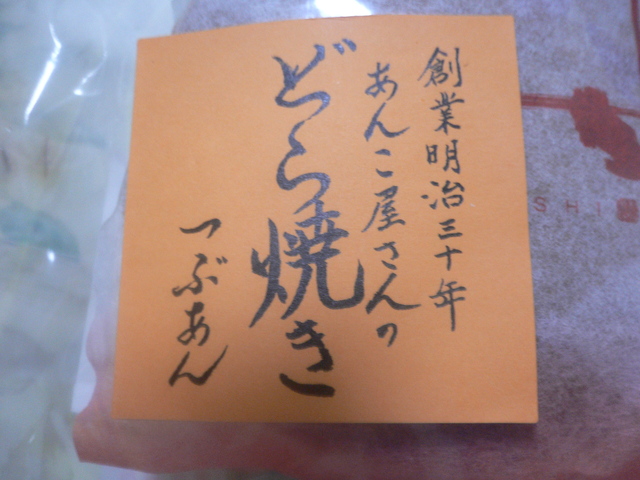 創業明治三十年
あんこ屋さんの
どら焼き
つぶあん
SHI